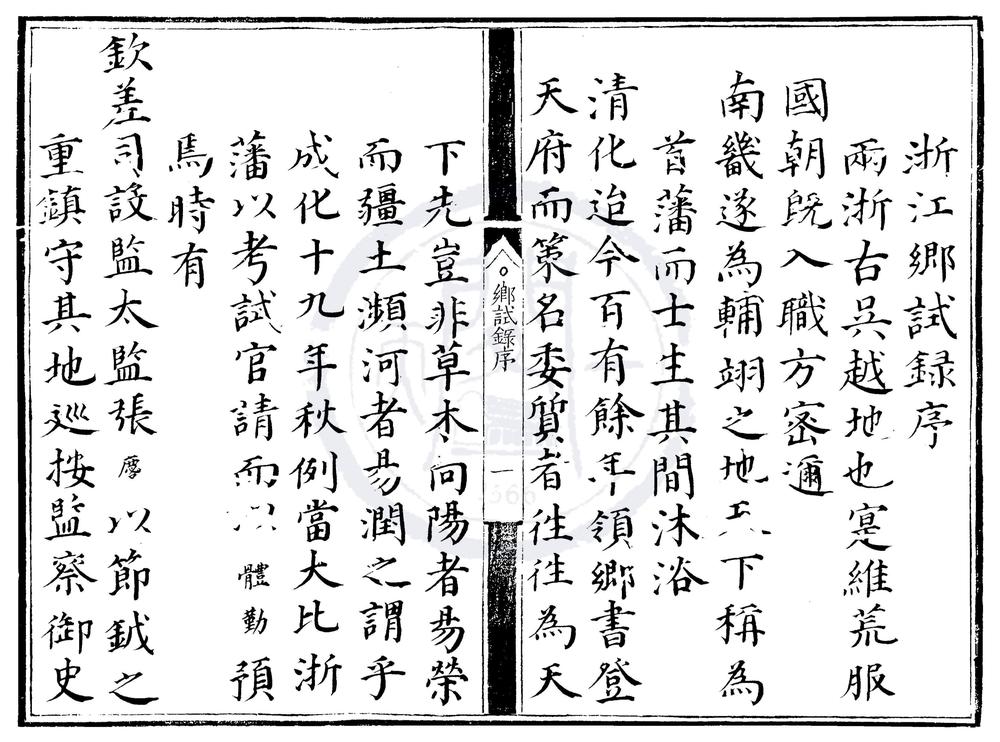 浙江鄉試録序
兩浙古吳越地也寔維荒服
國朝既入職方密邇
南畿遂為輔翊之地 下稱為
首藩而士生其間沐浴
清化迨今百有餘年領鄉書登
天府而策名委質者徃徃為天
鄉試錄序
一
下先豈非草木向陽者昜榮
而疆土瀕河者昜潤之謂乎
成化十九年秋例當大比浙
藩以考試官請而以體勤預
焉時有
欽差司設監太監張慶以節鉞之
重鎮守其地廵按監察御史